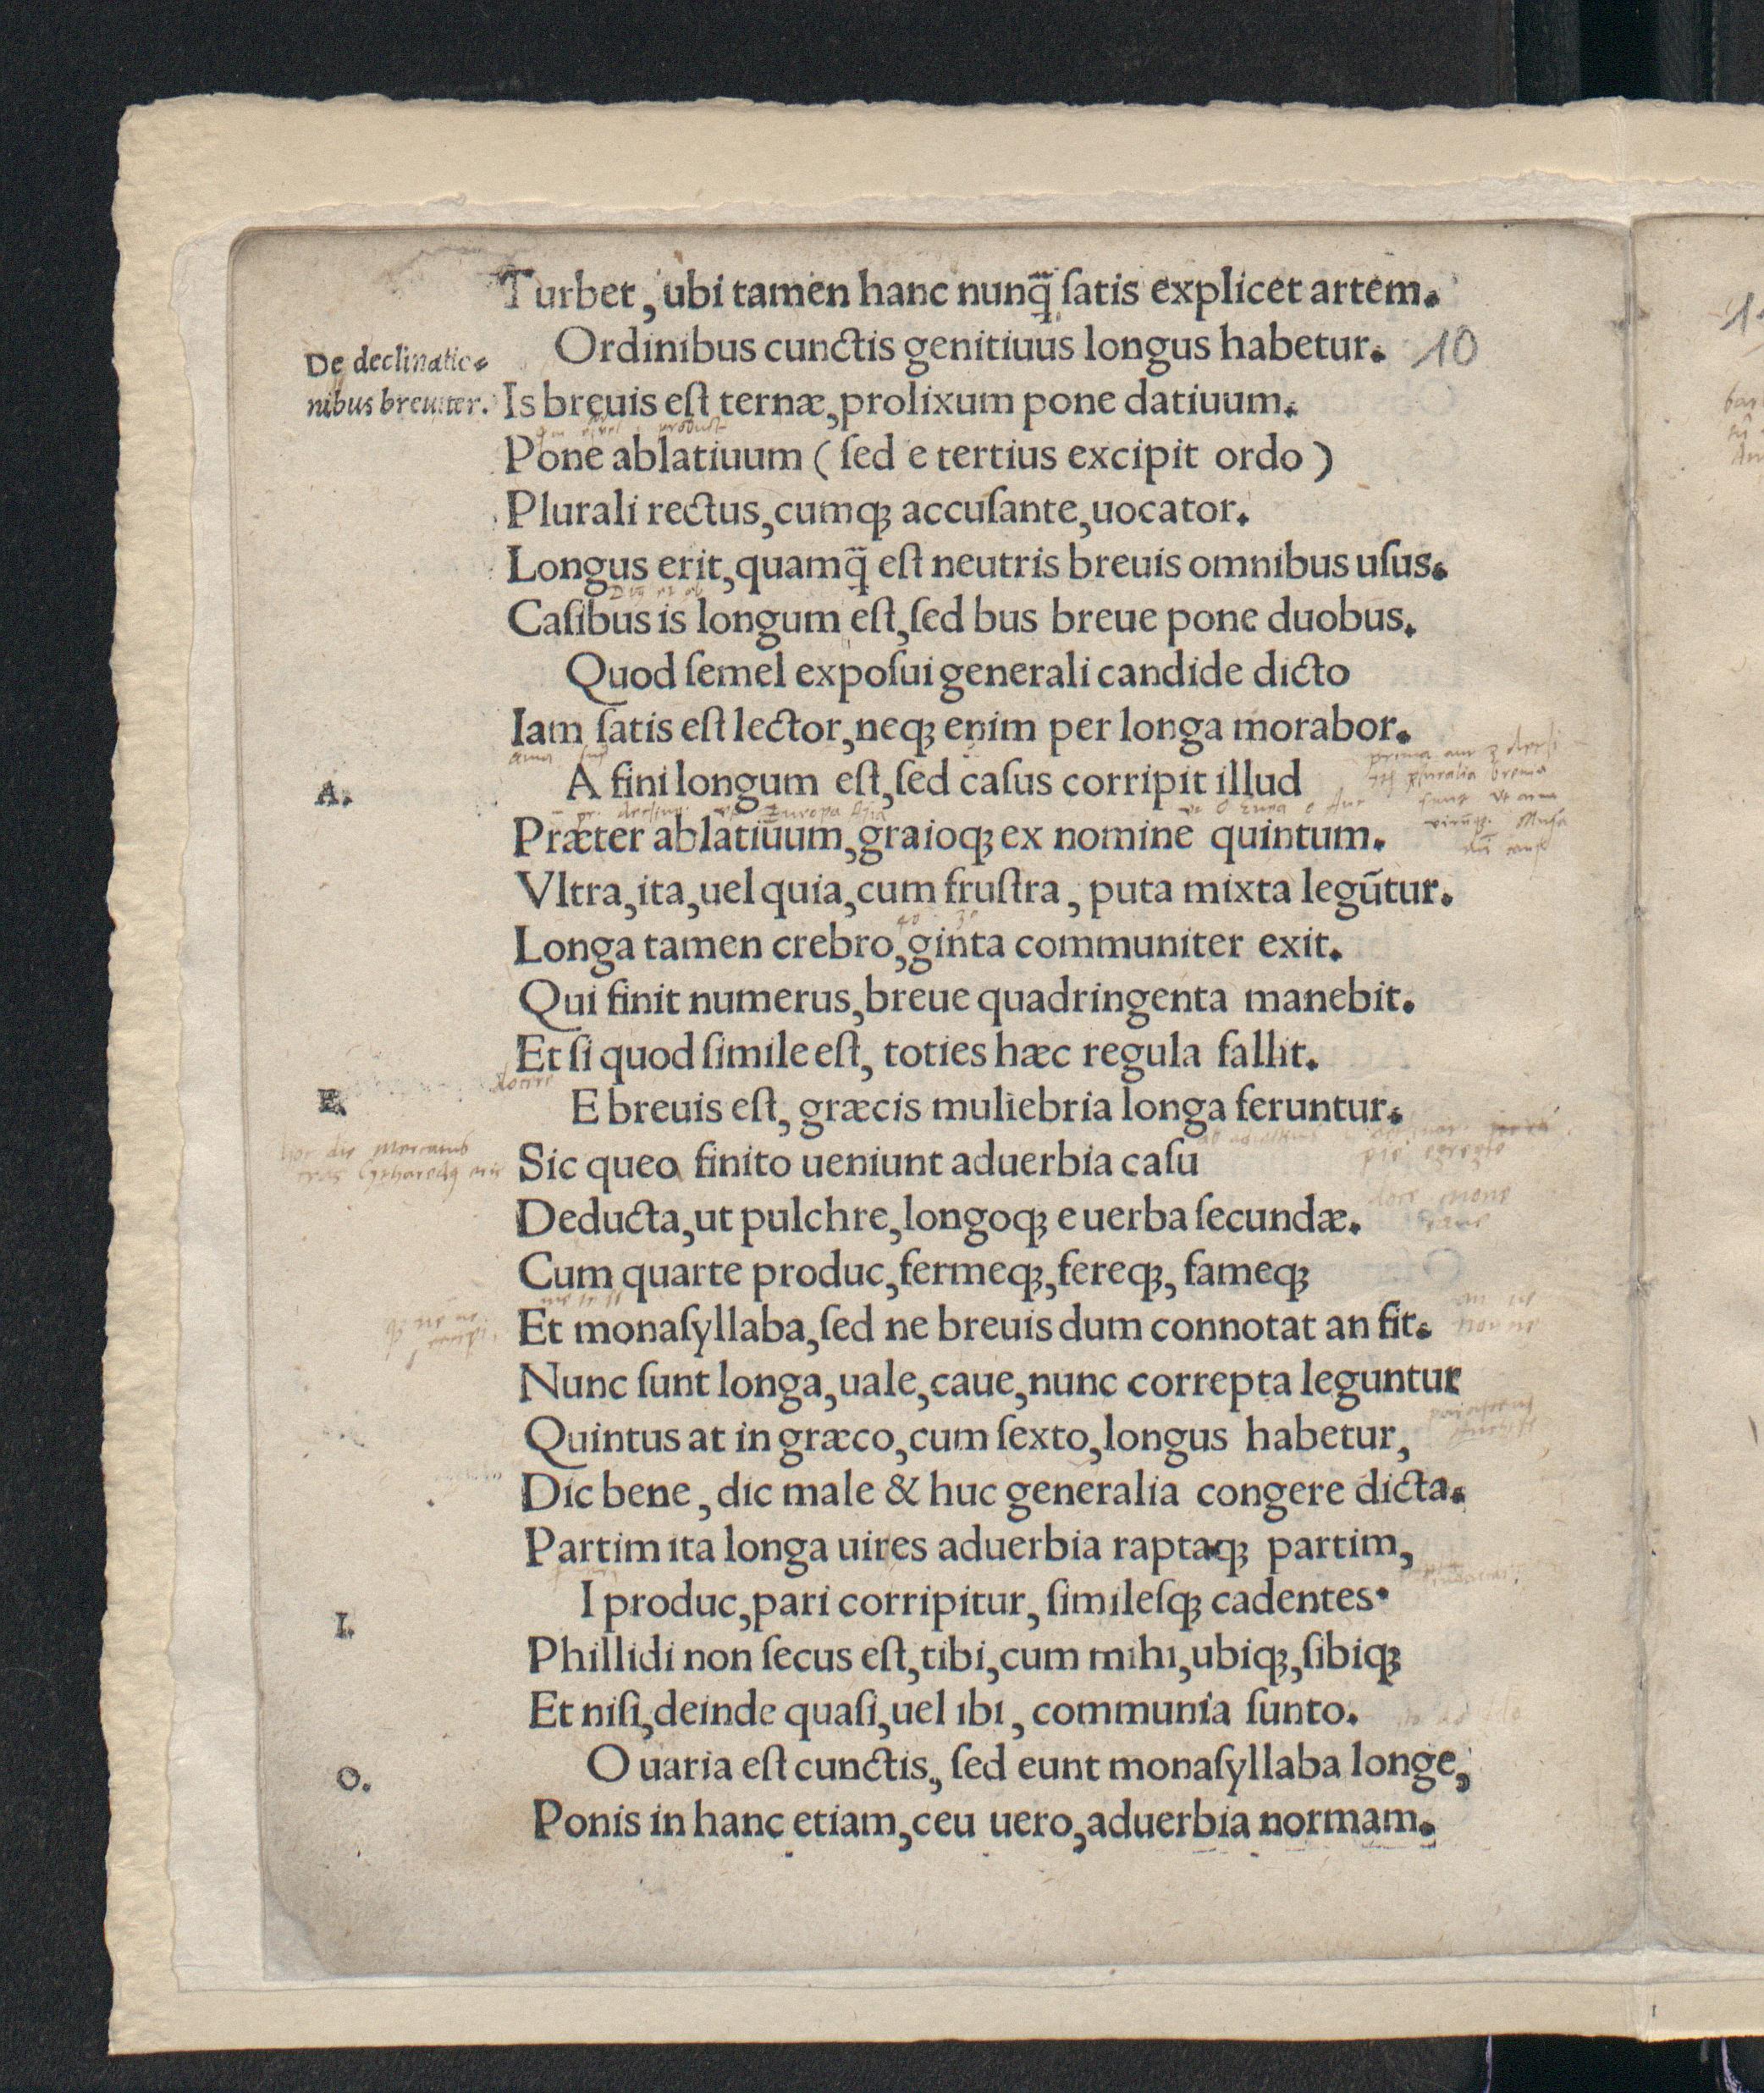 Turbet, ubi tamen hanc nunq̃ ſatis explicet artem.
Ordinibus cunctis genitiuus longus habetur. 10
De declinatio-
nibus breuiter.
Is breuis eſt ternæ, prolixum pone datiuum.
Pone ablatiuum (ſed e tertius excipit ordo)
Plurali rectus, cumqꝫ accuſante, uocator.
Longus erit, quamq̃ eſt neutris breuis omnibus uſus.
Caſibus is longum eſt, ſed bus breue pone duobus.
Quod ſemel expoſui generali candide dicto
Iam ſatis eſt lector, neqꝫ enim per longa morabor.
A.
A fini longum eſt, ſed caſus corripit illud
Præter ablatiuum, graioqꝫ ex nomine quintum.
Vltra, ita, uel quia, cum fruſtra, puta mixta legũtur.
Longa tamen crebro, ginta communiter exit.
Qui finit numerus, breue quadringenta manebit.
Et ſi quod ſimile eſt, toties hæc regula fallit.
E.
E breuis eſt, græcis muliebria longa feruntur.
Sic queo finito ueniunt aduerbia caſu
Deducta, ut pulchre, longoqꝫ e uerba ſecundæ.
Cum quarte produc, fermeqꝫ, fereqꝫ, fameqꝫ
Et monaſyllaba, ſed ne breuis dum connotat an fit.
Nunc ſunt longa, uale, caue, nunc correpta leguntur
Quintus at in græco, cum ſexto, longus habetur,
Dic bene, dic male & huc generalia congere dicta.
Partim ita longa uires aduerbia raptaqꝫ partim,
I.
I produc, pari corripitur, ſimileſqꝫ cadentes.
Phillidi non ſecus eſt, tibi, cum mihi, ubiqꝫ, ſibiqꝫ
Et niſi, deinde quaſi, uel ibi, communia ſunto.
O.
O uaria eſt cunctis, ſed eunt monaſyllaba longe,
Ponis in hanc etiam, ceu uero, aduerbia normam.